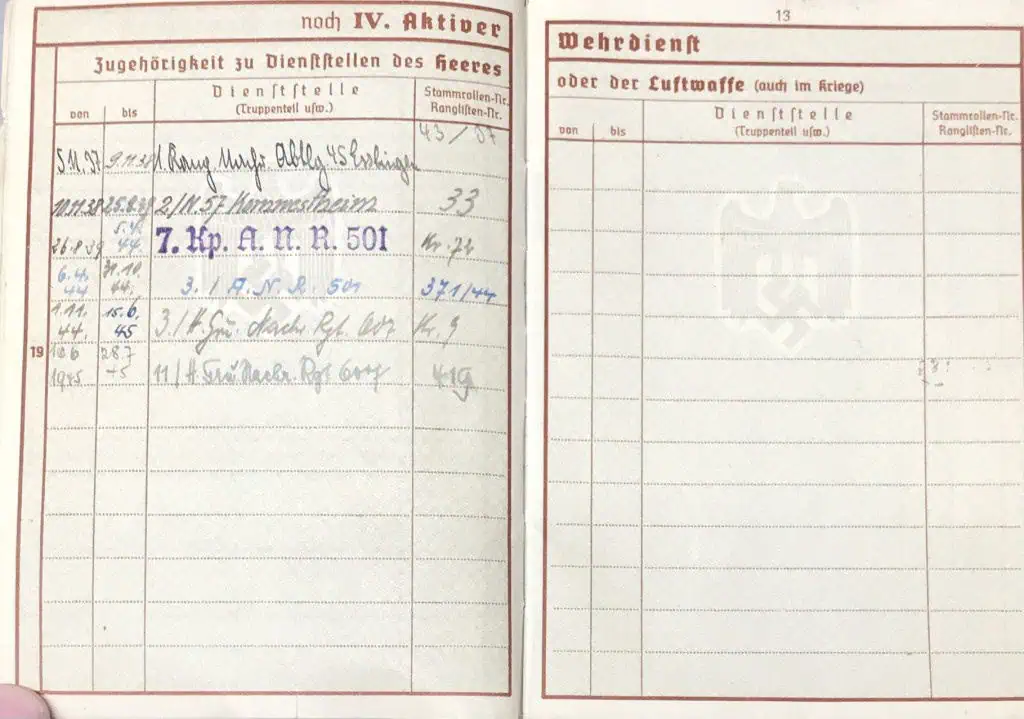 noch IV. Aktiver
Zugehörigkeit zu Dienststellen des Heeres
von bis Dienststelle (Truppenteil usw.) Stammrollen-Nr. Ranglisten-Nr.
43/37
5.11.37 9.11.38 1. Nachr. Abtlg 45 Esslingen
10.11.38 25.8.39 2/N.57 33
26.8.39 5.4.44 7. Kp. A. N. R. 501 Kr. 72
6.4.44 31.10.44. 3./A.N.R. 501 371/44
1.11.44. 15.6.45 3./H. Gru. Nachr. Rgt. Kr. 9
19 10.6 1945 28.7 45 11/H Gru Nachr. Rgt 419
13
Wehrdienst
oder der Luftwaffe (auch im Kriege)
von bis Dienststelle (Truppenteil usw.) Stammrollen-Nr. Ranglisten-Nr.